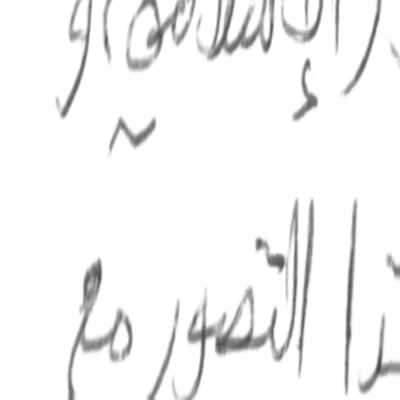 الإسلامي و
هذا التصور مع